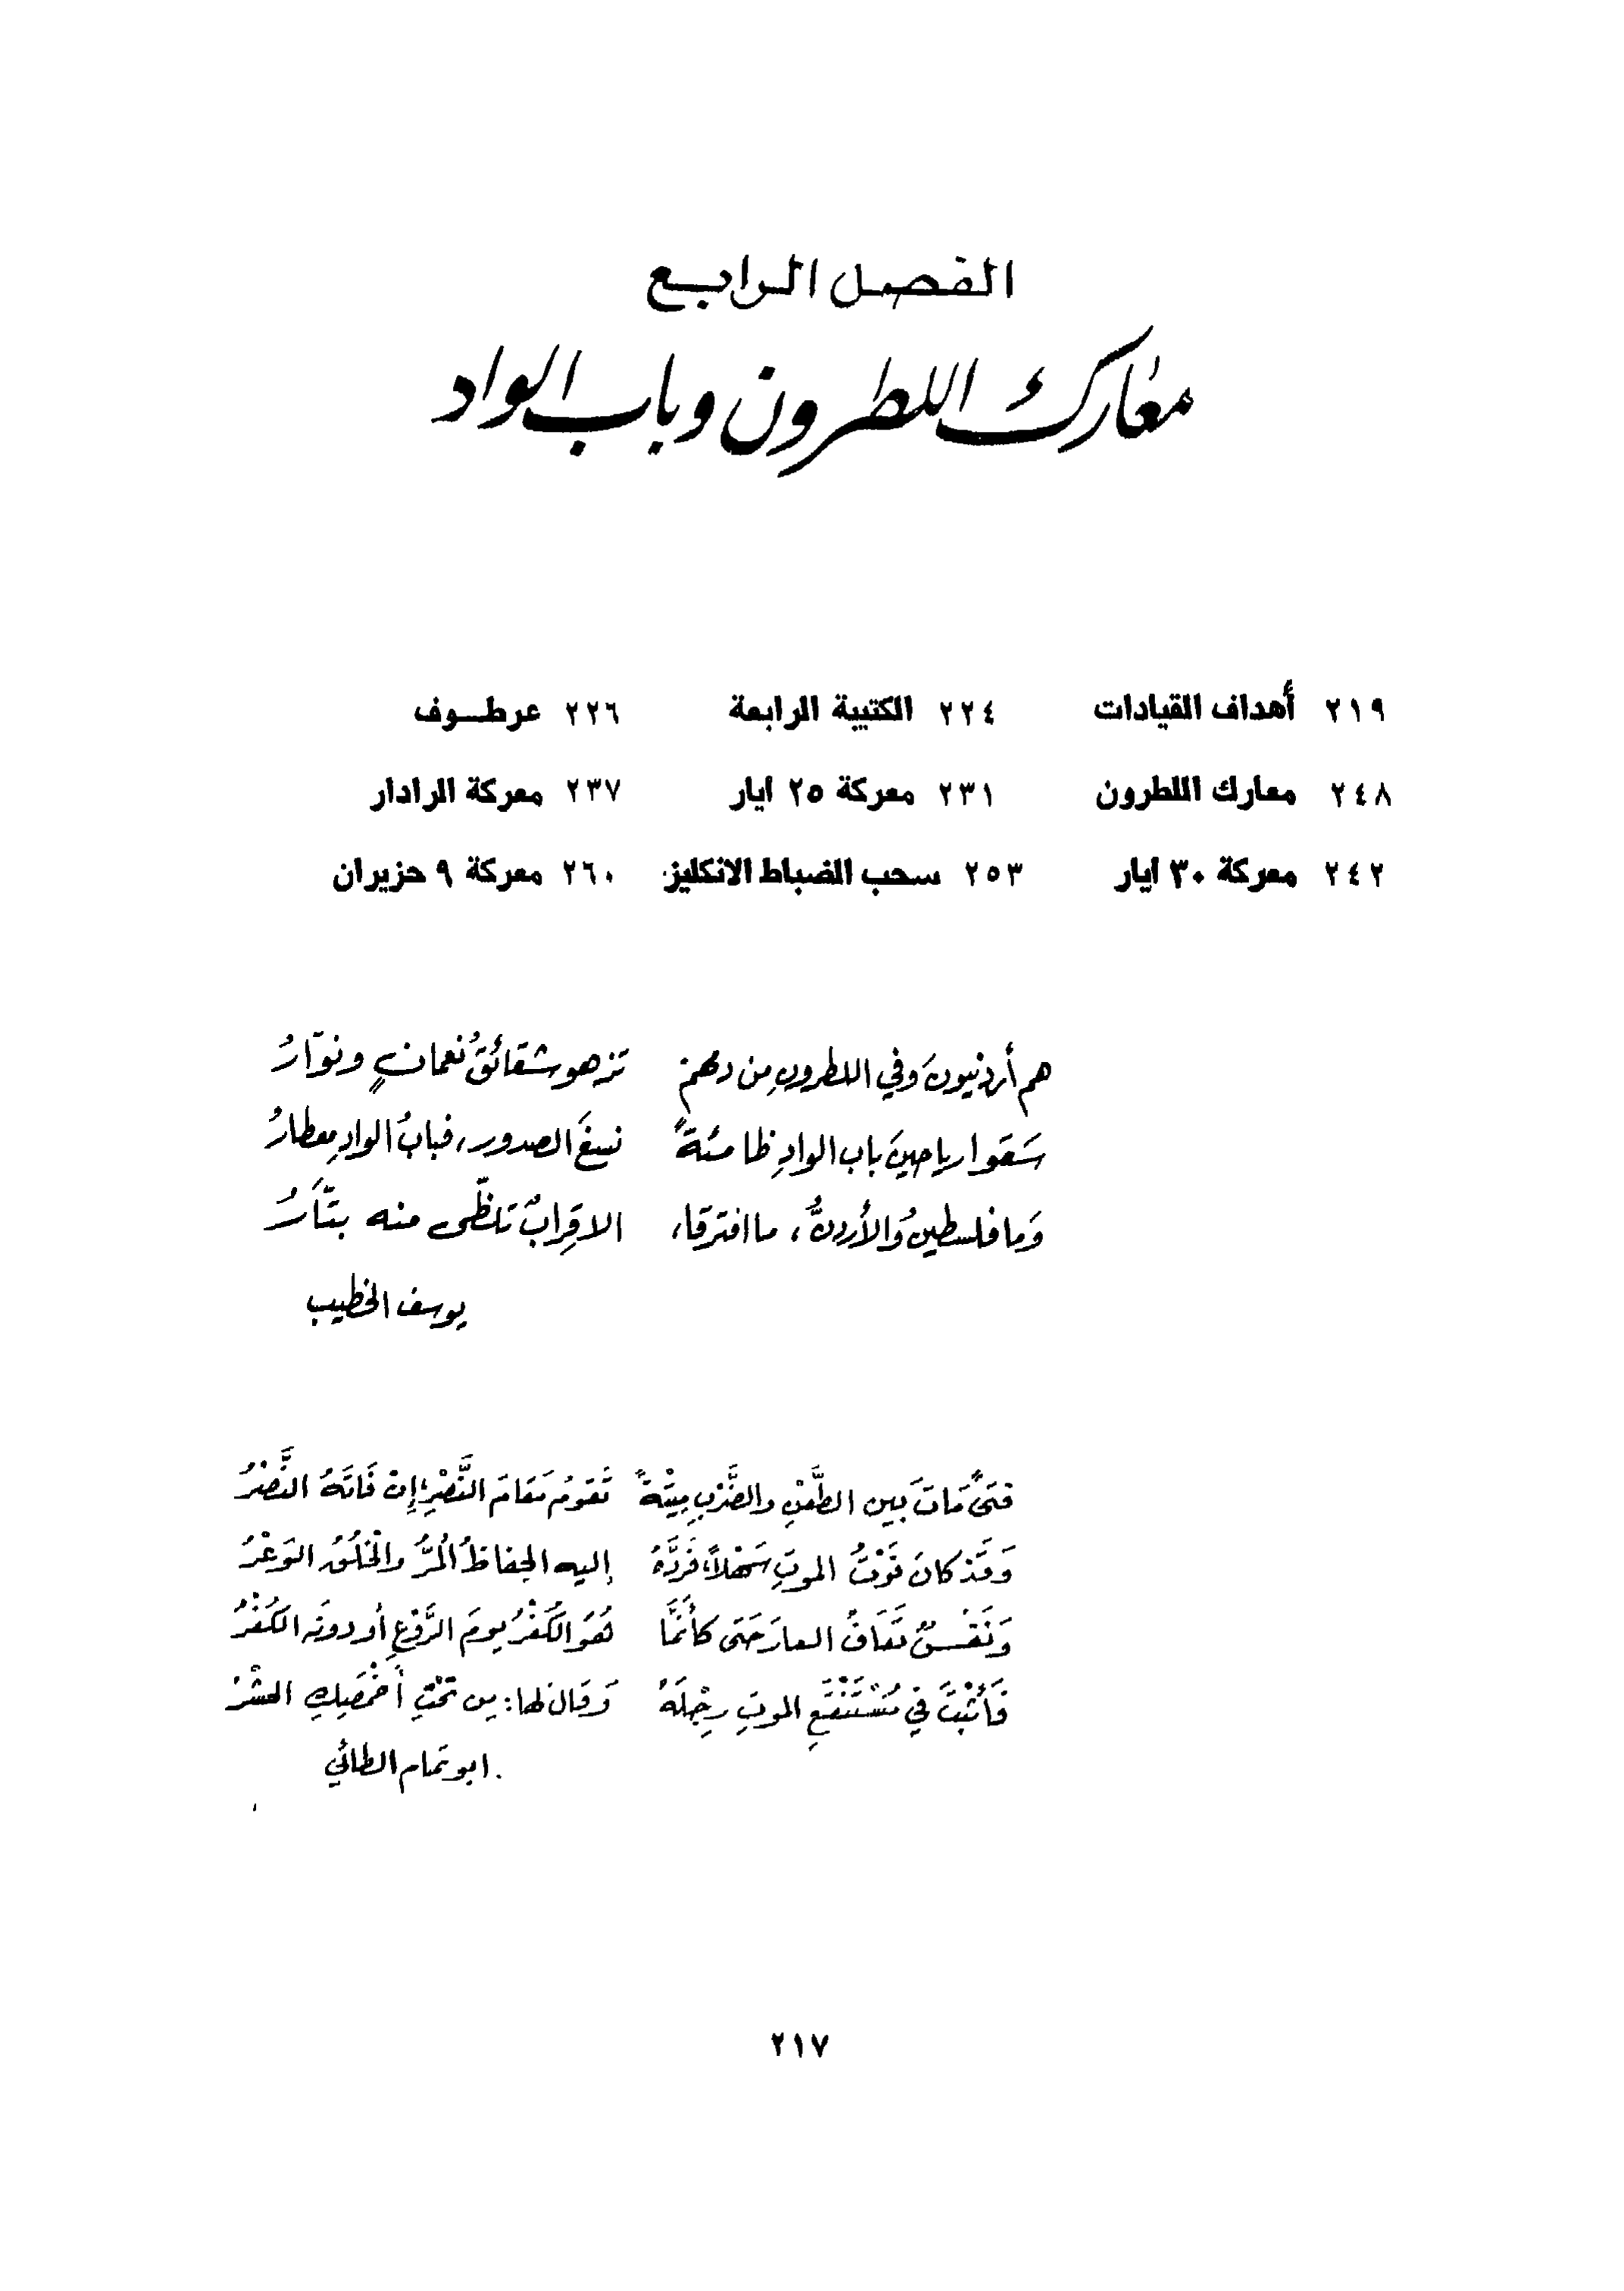 الفصل الرابع
معارك اللطرون وباب الواد
٢١٩ أهداف القيادات ٢٢٤ الكتيبة الرابعة ٢٢٦ عرطوف
٢٤٨ معارك اللطرون ٢٣١ معركة ٢٥ ايار ٢٣٧ معركة الرادار
٢٤٢ معركة ٣٠ ايار ٢٥٣ سحب الضباط الانكليز ٢٦٠ معركة ٩ حزيران
هم أردنيونَ وفي اللطرونِ مِن دمهمْ تزهو شقائقُ نُعمانٍ ونوّارُ
سَقَوا رياحينَ باب الوادِ ظامئةً نسغَ الصدور، فبابُ الوادِ مِعطارُ
وَما فلسطينُ والأردنُّ، ما افترقا، الا قِرابٌ تلظّى منه بتّارُ
يوسف الخطيب
فتىً مَاتَ بين الطَّعْنِ والضَّرْبِ مِيْتَةً تَقومُ مَقامَ النَّصْرِ، إِنْ فَاتَهُ النَّصْرُ
وَقَدْ كانَ فَوْتُ الموتِ سَهْلاً، فَرَدَّهُ إليه الحِفاظُ المُرُّ والخُلُقُ الوَعْرُ
وَنَفْسٌ تَعَافُ العارَ حَتى كأَنَّمَا هُوَ الكُفْرُ يومَ الرَّوْعِ أو دونَه الكُفْرُ
فَأَثْبَتَ في مُسْتَنْقَعِ الموتِ رِجْلَهُ وَقالَ لها: مِن تَحْتِ أَخْمَصِكِ الحشْرُ
ابو تمام الطائي
٢١٧